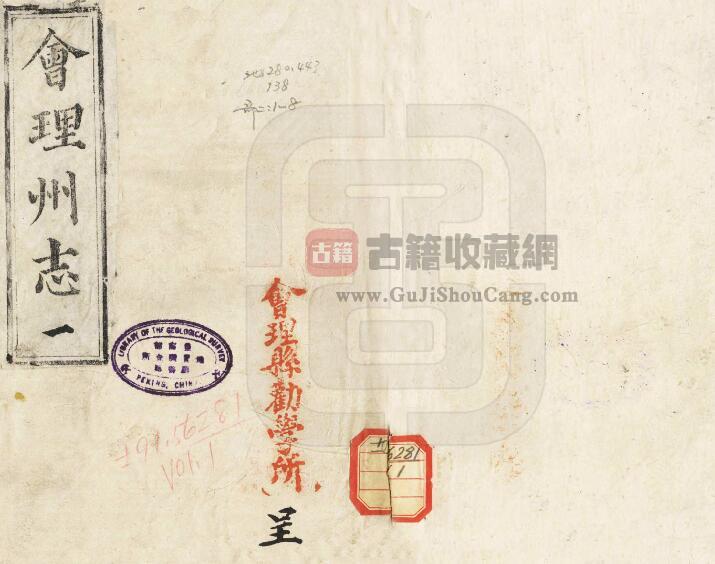 會理州志一
地280.443
138
LIBRARY OF THE GEOLOGICAL SURVEY
PEKING, CHINA
古籍
古籍收藏網
www.GuJiShouCang.com
會理縣勸學所
呈
56281
Vol.1
6281
1